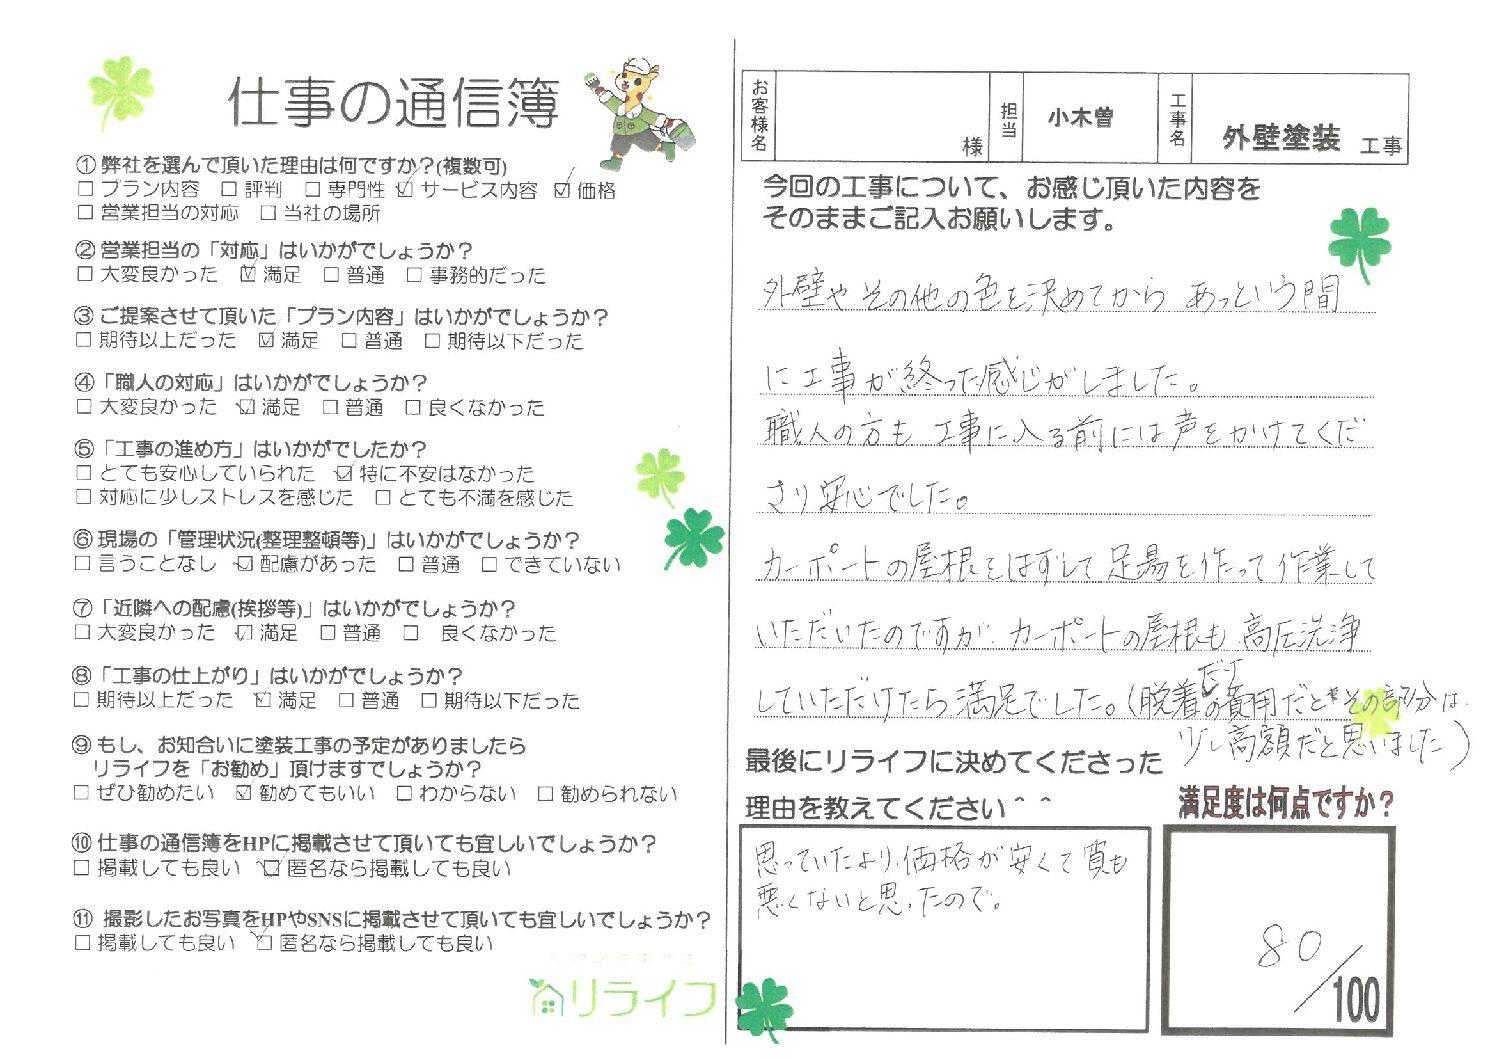 仕事の通信簿
① 弊社を選んで頂いた理由は何ですか?(複数可)
□ プラン内容 □ 評判 □ 専門性 ☑ サービス内容 ☑ 価格
□ 営業担当の対応 □ 当社の場所
② 営業担当の「対応」はいかがでしょうか?
□ 大変良かった ☑ 満足 □ 普通 □ 事務的だった
③ ご提案させて頂いた「プラン内容」はいかがでしょうか?
□ 期待以上だった ☑ 満足 □ 普通 □ 期待以下だった
④「職人の対応」はいかがでしょうか?
□ 大変良かった ☑ 満足 □ 普通 □ 良くなかった
⑤「工事の進め方」はいかがでしたか?
□ とても安心していられた ☑ 特に不安はなかった
□ 対応に少しストレスを感じた □ とても不満を感じた
⑥ 現場の「管理状況(整理整頓等)」はいかがでしょうか?
□ 言うことなし ☑ 配慮があった □ 普通 □ できていない
⑦「近隣への配慮(挨拶等)」はいかがでしょうか?
□ 大変良かった ☑ 満足 □ 普通 □ 良くなかった
⑧「工事の仕上がり」はいかがでしょうか?
□ 期待以上だった ☑ 満足 □ 普通 □ 期待以下だった
⑨ もし、お知合いに塗装工事の予定がありましたら
リライフを「お勧め」頂けますでしょうか?
□ ぜひ勧めたい ☑ 勧めてもいい □ わからない □ 勧められない
⑩ 仕事の通信簿をHPに掲載させて頂いても宜しいでしょうか?
□ 掲載しても良い ☑ 匿名なら掲載しても良い
⑪ 撮影したお写真をHPやSNSに掲載させて頂いても宜しいでしょうか?
□ 掲載しても良い ☑ 匿名なら掲載しても良い
リライフ
お客様名 様 担当 小木曽 工事名 外壁塗装 工事
今回の工事について、お感じ頂いた内容を
そのままご記入お願いします。
外壁や その他の色を決めてから あっという間
に工事が終った感じがしました。
職人の方も 工事に入る前には声をかけてくだ
さり安心でした。
カーポートの屋根をはずして足場を作って作業して
いただいたのですが、カーポートの屋根も 高圧洗浄
していただけたら満足でした。(脱着だけの費用だとその部分は
少し高額だと思いました)
最後にリライフに決めてくださった
理由を教えてください^ ^
思っていたより価格が安くて質も
悪くないと思ったので。
満足度は何点ですか?
80/100